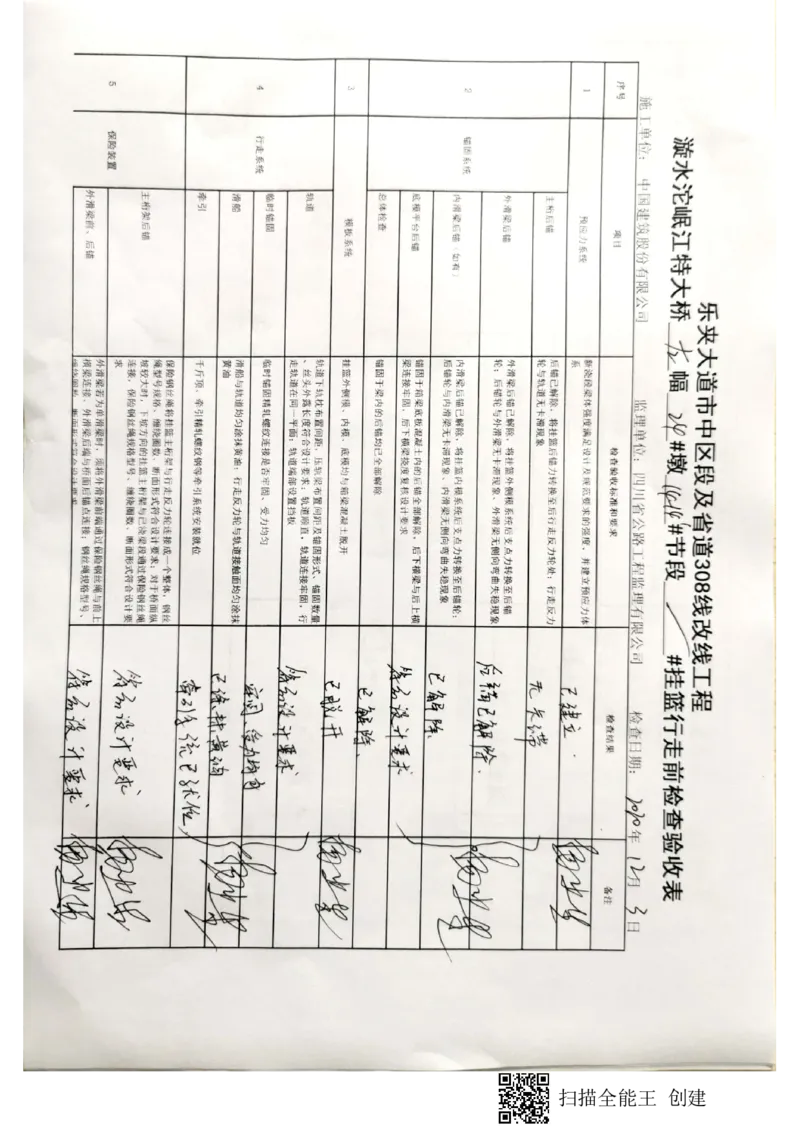 乐夹大道市中区段及省道308线改线工程
漩水沱岷江特大桥 左 幅 24 #墩 #节段 #挂篮行走前检查验收表
施工单位：中国建筑股份有限公司 监理单位：四川省公路工程监理有限公司 检查日期：2020年12月3日
序号 项目 检查验收标准和要求 检查结果 备注
1 预应力系统 新浇段梁体强度满足设计及规范要求的强度，并建立预应力体系 已建立.
2 锚固系统 主桁后锚 后锚已解除，将挂篮后锚力转换至后行走反力轮处；行走反力轮与轨道无卡滞现象 无卡滞
外滑梁后锚 外滑梁后锚已解除，将挂篮外侧模系统后支点力转换至后锚轮；后锚轮与外滑梁无卡滞现象、外滑梁无侧向弯曲失稳现象 后锚已解除.
内滑梁后锚（如有） 内滑梁后锚已解除，将挂篮内模系统后支点力转换至后锚轮；后锚轮与内滑梁无卡滞现象、内滑梁无侧向弯曲失稳现象 已解除.
底模平台后锚 锚固于箱梁底板混凝土内的后锚全部解除，后下横梁与后上横梁连接牢固，后下横梁挠度复核设计要求 符合设计要求
总体检查 锚固于梁内的后锚均已全部解除 已解除.
3 模板系统 挂篮外侧模、内模、底模均与箱梁混凝土脱开 已脱开
4 行走系统 轨道 轨道下轨枕布置间距、压轨梁布置间距及锚固形式、锚固数量、丝头外露长度符合设计要求；轨道顺直，轨道连接牢固，行走轨道在同一平面；轨道端部设置挡板 符合设计要求
临时锚固 临时锚固精轧螺纹连接是否牢固、受力均匀 牢固 受力均匀
滑船 滑船与轨道均匀涂抹黄油；行走反力轮与轨道接触面均匀涂抹黄油 已涂抹黄油
牵引 千斤顶、牵引精轧螺纹钢等牵引系统安装就位 牵引系统已就位
5 保险装置 主桁架后锚 保险钢丝绳将挂篮主桁架与行走反力轮连接成一个整体，钢丝绳型号规格、缠绕圈数、断面形式符合设计要求；对于桥面纵坡较大时，下坡方向的挂篮主桁架与已浇梁段通过保险钢丝绳连接，保险钢丝绳规格型号、缠绕圈数、断面形式符合设计要求 符合设计要求
外滑梁前、后锚 外滑梁若为单滑梁时，须将外滑梁前端通过保险钢丝绳与前上横梁连接，外滑梁后端与桥面后锚点连接；钢丝绳规格型号、 符合设计要求
扫描全能王 创建